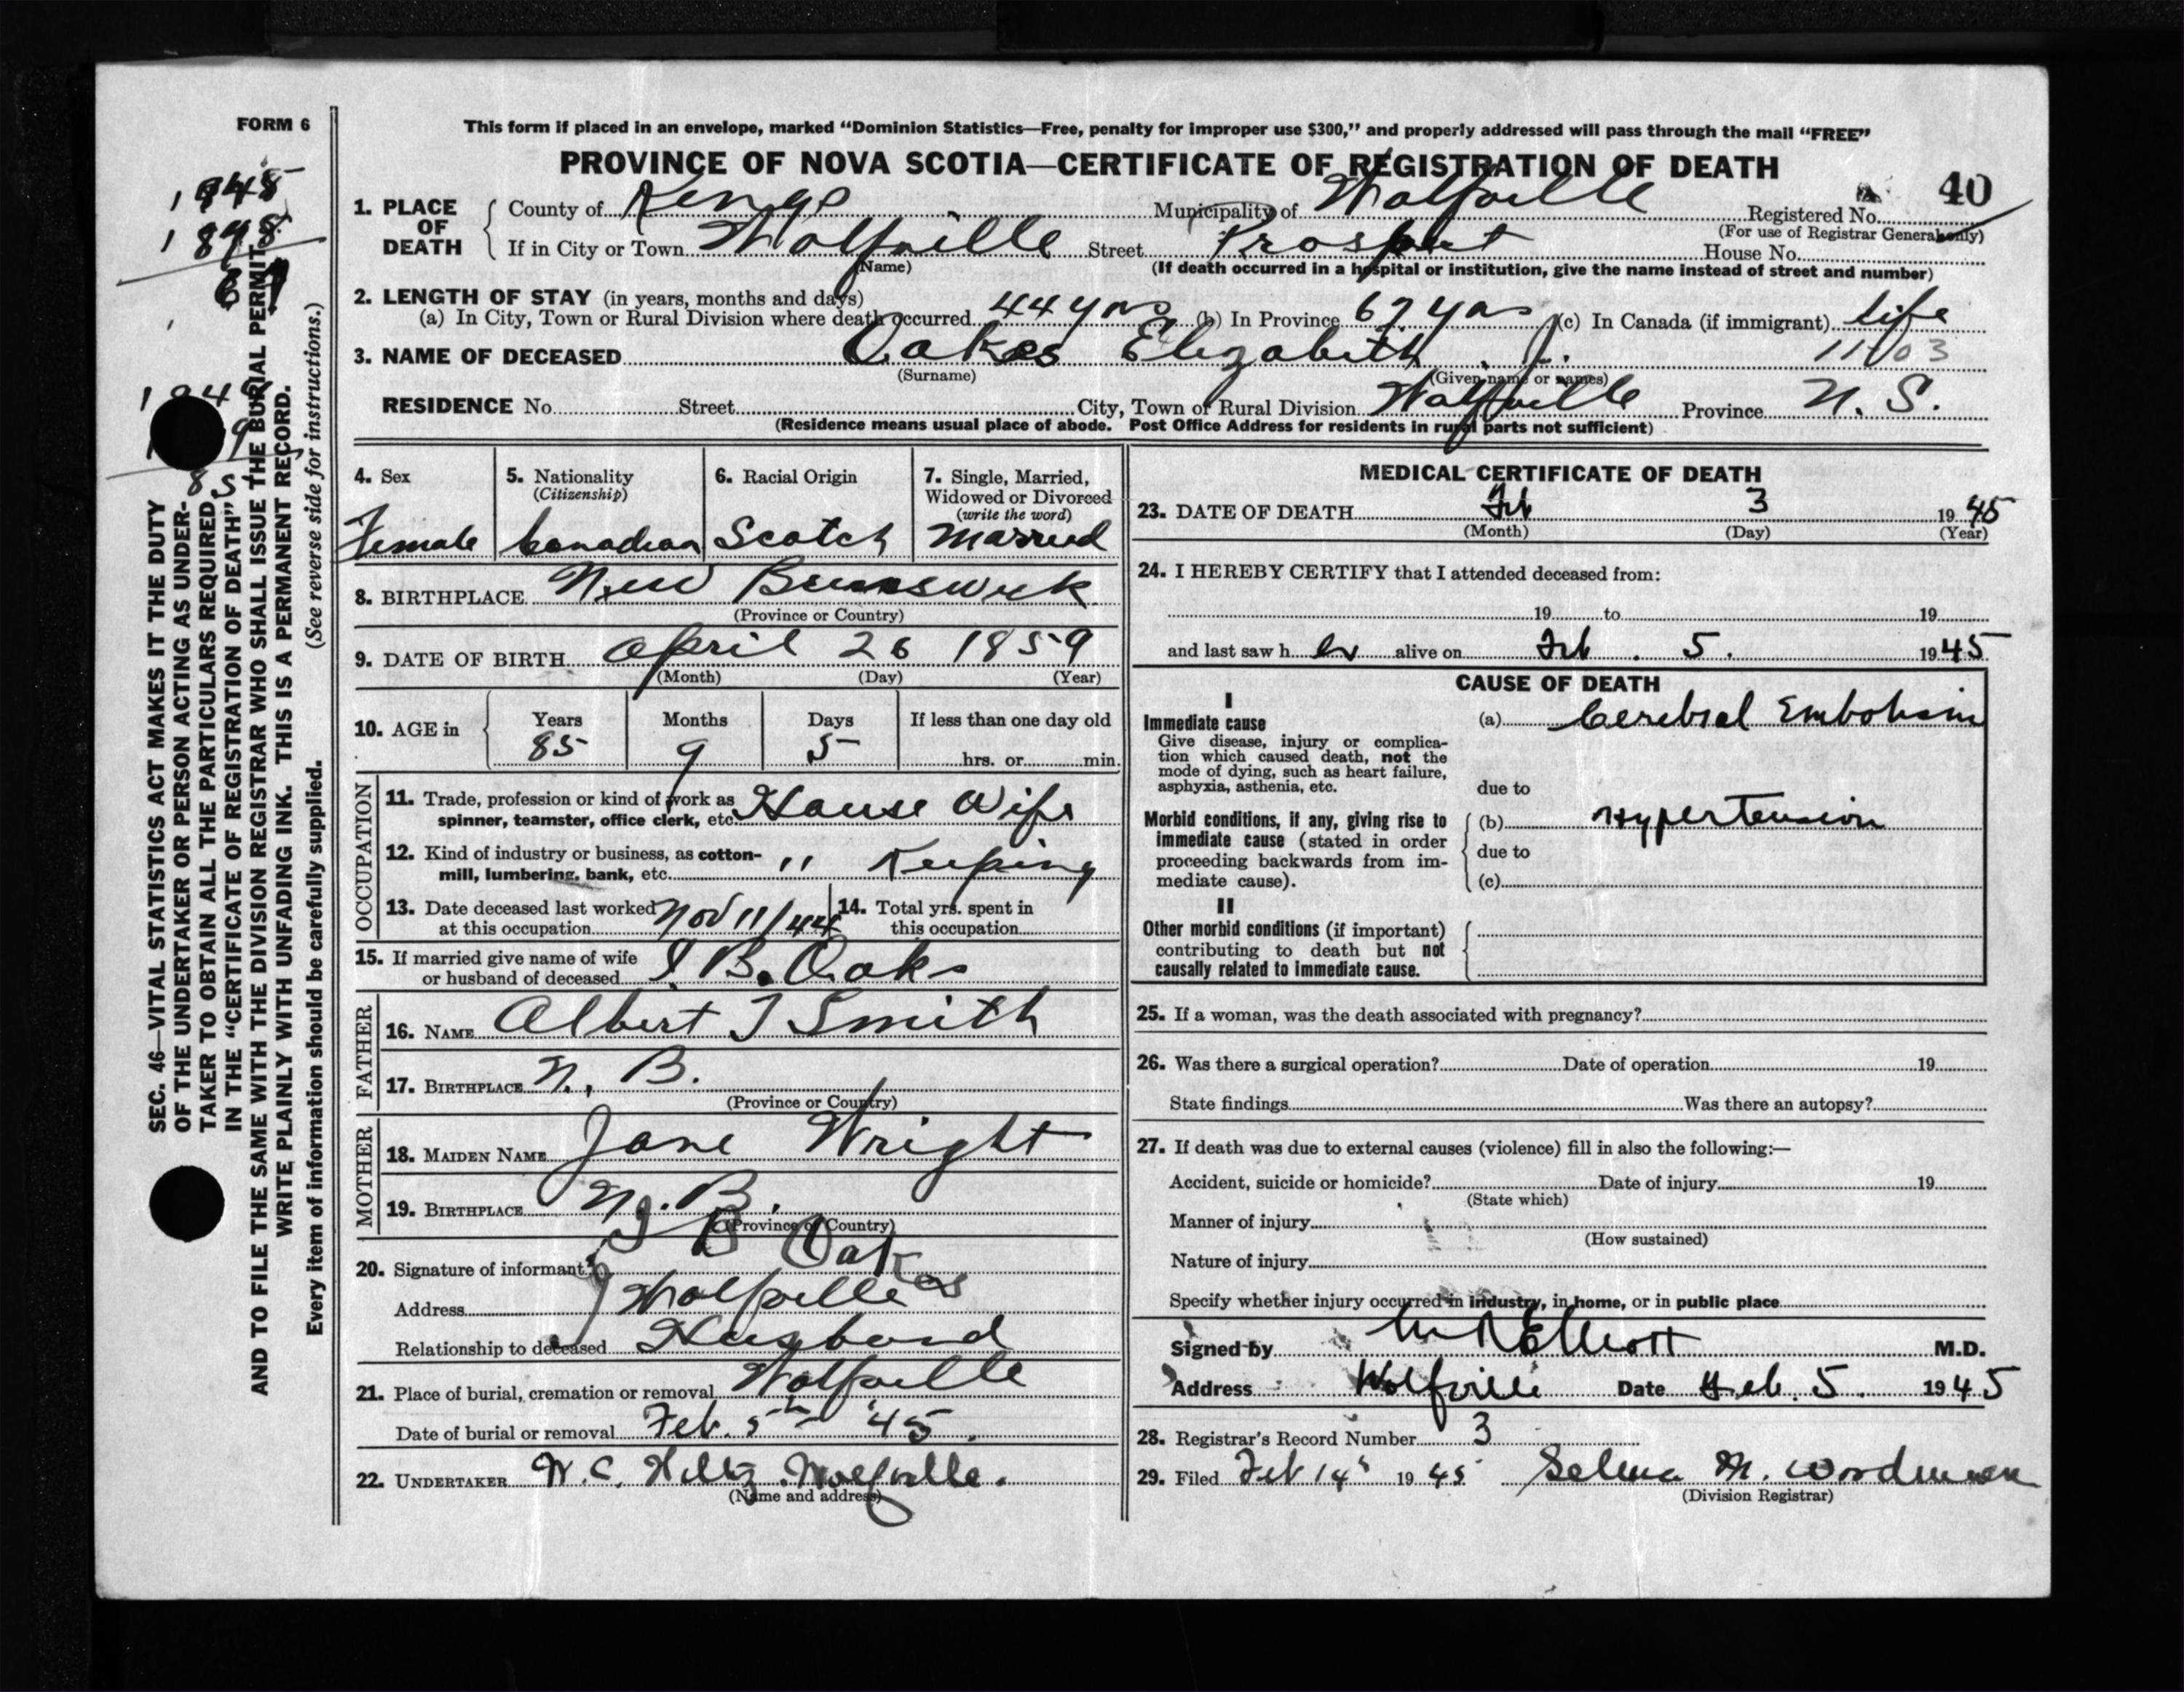 FORM 6
This form if placed in an envelope, marked “Dominion Statistics—Free, penalty for improper use $300,” and properly addressed will pass through the mail “FREE”
PROVINCE OF NOVA SCOTIA—CERTIFICATE OF REGISTRATION OF DEATH
40
1. PLACE OF DEATH
County of Kings Municipality of Wolfville Registered No.
(For use of Registrar General only)
If in City or Town Wolfville Street Prospect House No.
(Name) (If death occurred in a hospital or institution, give the name instead of street and number)
2. LENGTH OF STAY (in years, months and days)
(a) In City, Town or Rural Division where death occurred 44 yrs (b) In Province 67 yrs (c) In Canada (if immigrant) Life
3. NAME OF DECEASED Oakes Elizabeth J. 1103
(Surname) (Given name or names)
RESIDENCE No. Street City, Town or Rural Division Wolfville Province N. S.
(Residence means usual place of abode. Post Office Address for residents in rural parts not sufficient)
4. Sex
Female
5. Nationality
(Citizenship)
Canadian
6. Racial Origin
Scotch
7. Single, Married, Widowed or Divorced
(write the word)
Married
8. BIRTHPLACE New Brunswick
(Province or Country)
9. DATE OF BIRTH April 26 1859
(Month) (Day) (Year)
10. AGE in
Years Months Days If less than one day old
85 9 5 hrs. or min.
OCCUPATION
11. Trade, profession or kind of work as
spinner, teamster, office clerk, etc. House Wife
12. Kind of industry or business, as cotton-
mill, lumbering, bank, etc. " Keeping
13. Date deceased last worked
at this occupation Nov 11/44
14. Total yrs. spent in
this occupation
15. If married give name of wife
or husband of deceased I. B. Oaks
FATHER
16. NAME Albert J Smith
17. BIRTHPLACE N. B.
(Province or Country)
MOTHER
18. MAIDEN NAME Jane Wright
19. BIRTHPLACE N. B.
(Province or Country)
20. Signature of informant I B Oakes
Address Wolfville
Relationship to deceased Husband
21. Place of burial, cremation or removal Wolfville
Date of burial or removal Feb. 5th '45.
22. UNDERTAKER W. C. Hiltz Wolfville.
(Name and address)
MEDICAL CERTIFICATE OF DEATH
23. DATE OF DEATH Feb 3 1945
(Month) (Day) (Year)
24. I HEREBY CERTIFY that I attended deceased from:
19 to 19
and last saw her alive on Feb. 5. 1945
CAUSE OF DEATH
I
Immediate cause
Give disease, injury or complica-
tion which caused death, not the
mode of dying, such as heart failure,
asphyxia, asthenia, etc.
(a) Cerebral Embolism
due to
Morbid conditions, if any, giving rise to
immediate cause (stated in order
proceeding backwards from im-
mediate cause).
(b) Hypertension
due to
(c)
II
Other morbid conditions (if important)
contributing to death but not
causally related to immediate cause.
25. If a woman, was the death associated with pregnancy?
26. Was there a surgical operation? Date of operation 19
State findings Was there an autopsy?
27. If death was due to external causes (violence) fill in also the following:—
Accident, suicide or homicide? Date of injury 19
(State which)
Manner of injury
(How sustained)
Nature of injury
Specify whether injury occurred in industry, in home, or in public place
Signed by Elliott M.D.
Address Wolfville Date Feb. 5. 1945
28. Registrar's Record Number 3
29. Filed Feb 14 1945 Selma M. Woodman
(Division Registrar)
SEC. 46—VITAL STATISTICS ACT MAKES IT THE DUTY
OF THE UNDERTAKER OR PERSON ACTING AS UNDER-
TAKER TO OBTAIN ALL THE PARTICULARS REQUIRED
IN THE “CERTIFICATE OF REGISTRATION OF DEATH”
AND TO FILE THE SAME WITH THE DIVISION REGISTRAR WHO SHALL ISSUE THE BURIAL PERMIT.
WRITE PLAINLY WITH UNFADING INK. THIS IS A PERMANENT RECORD.
Every item of information should be carefully supplied. (See reverse side for instructions.)